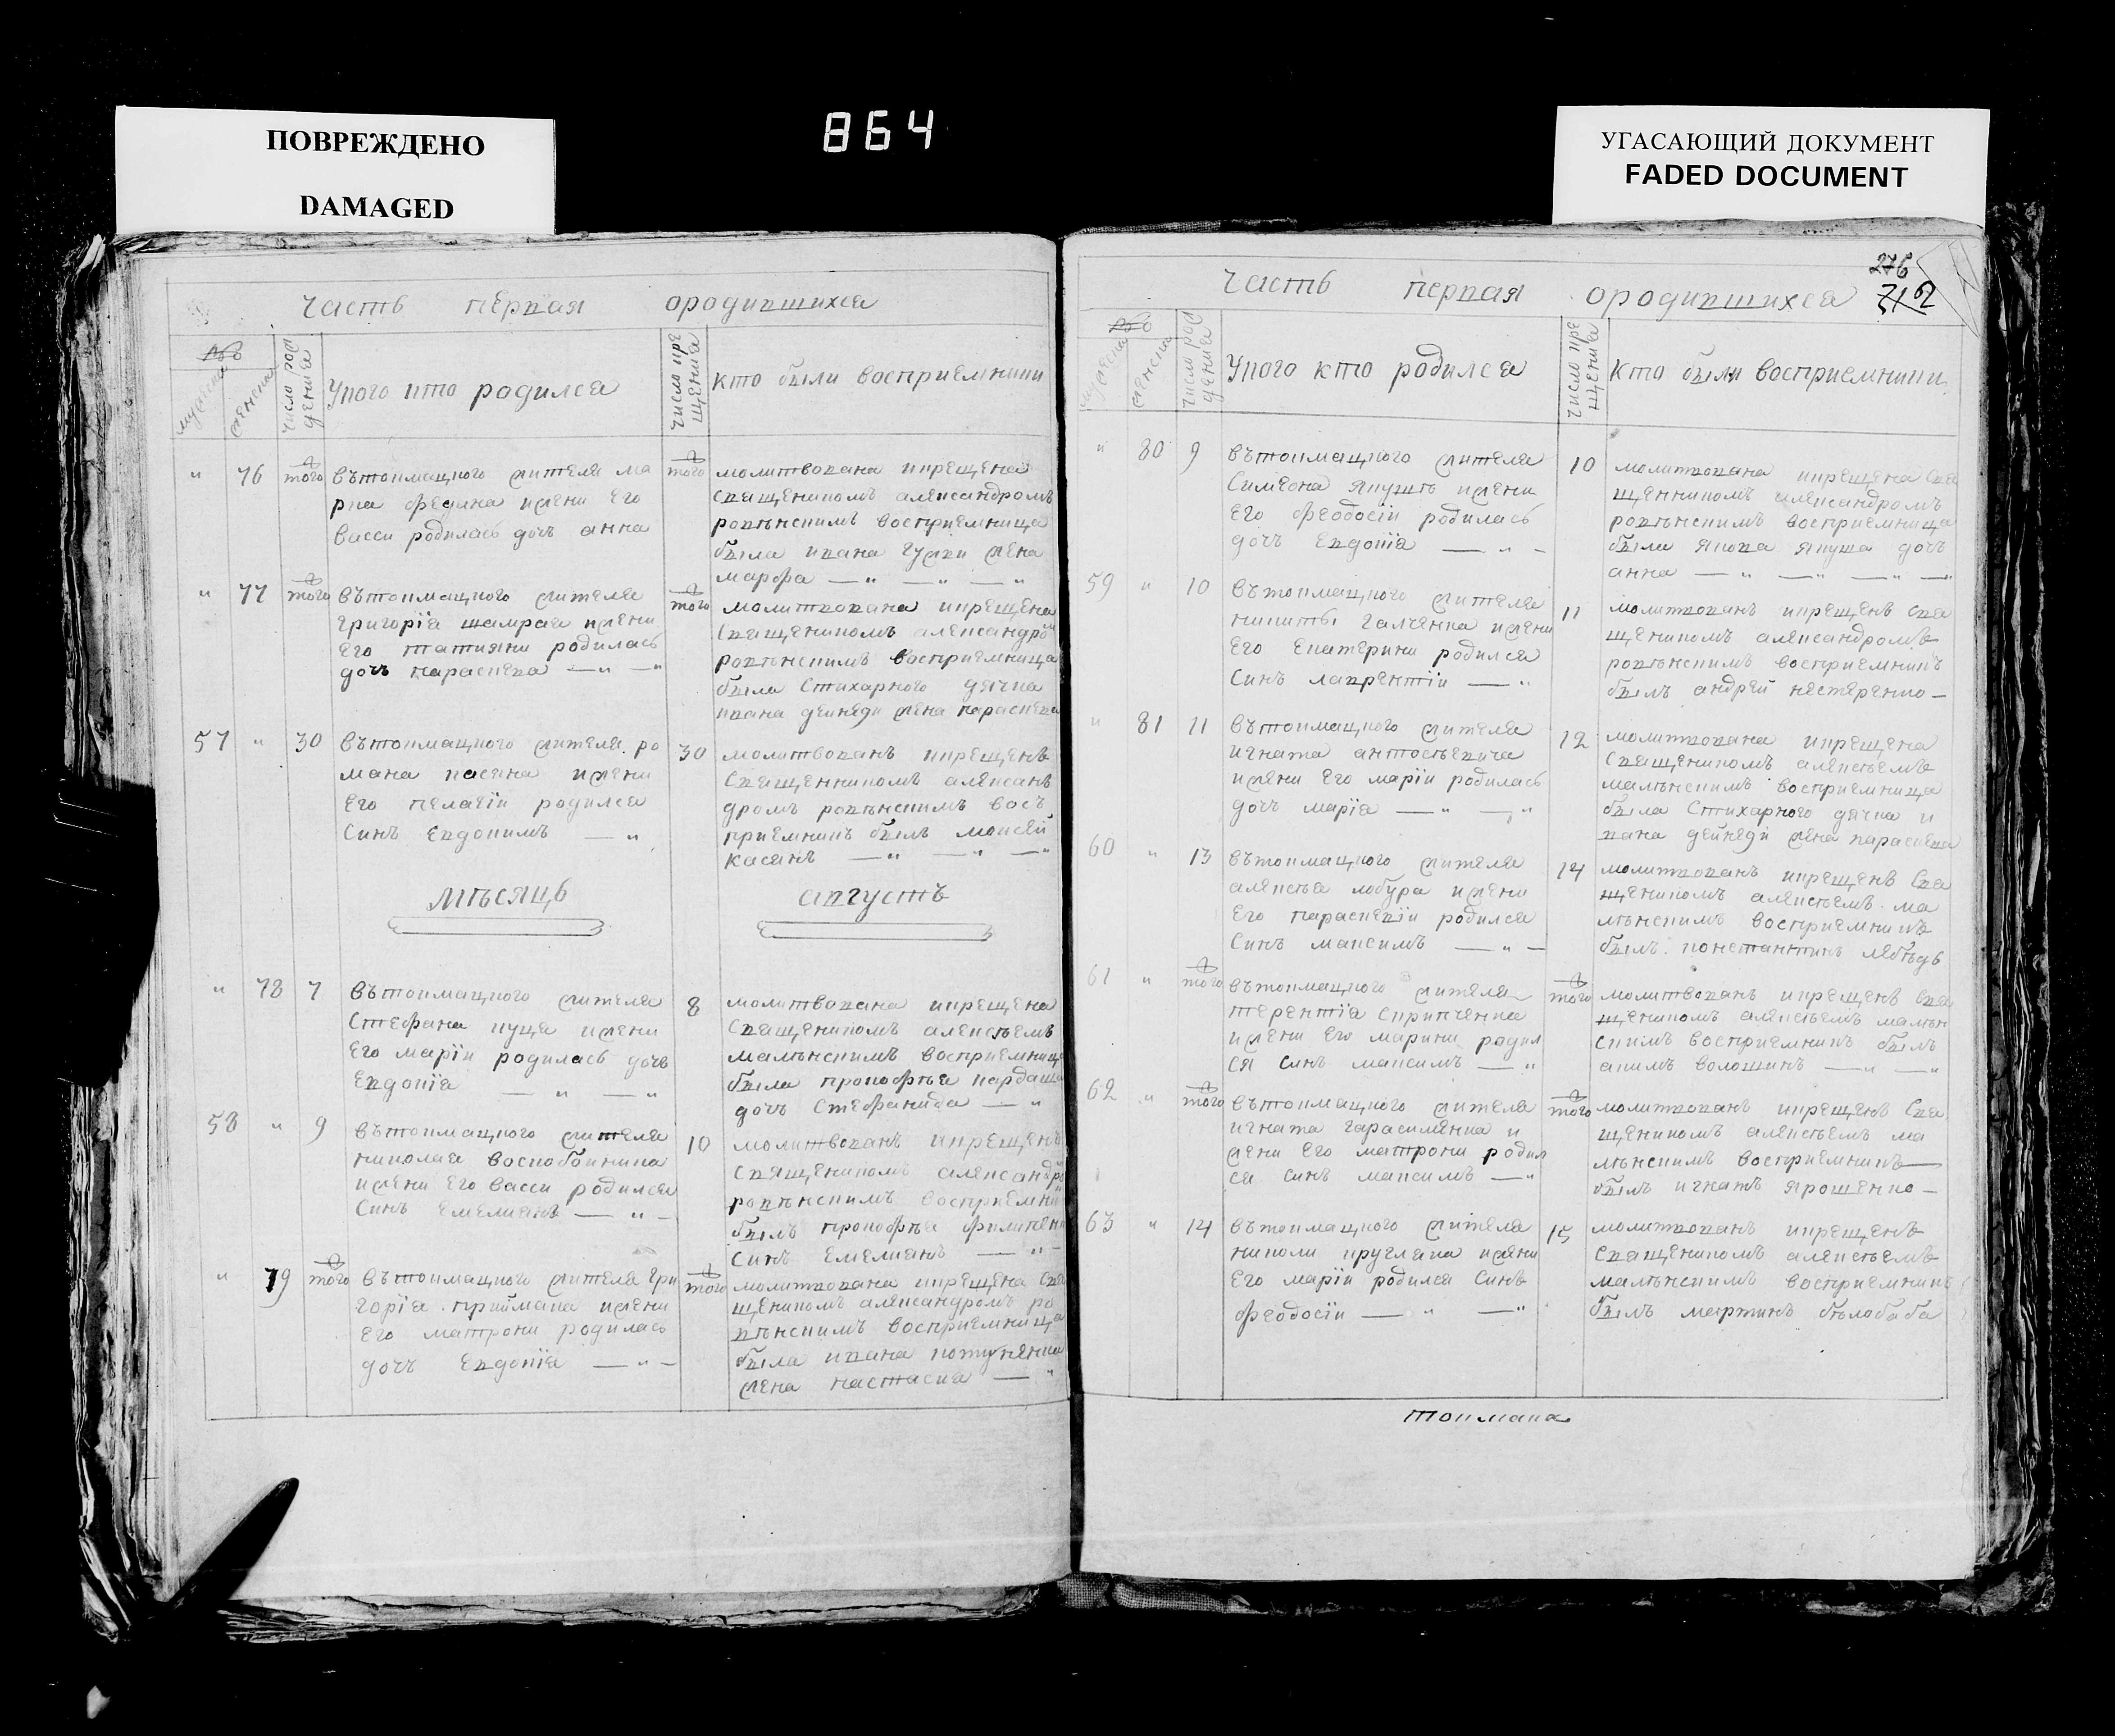 ПОВРЕЖДЕНО
DAMAGED
864
УГАСАЮЩИЙ ДОКУМЕНТ
FADED DOCUMENT
Часть первая ородившихся
№
мужеска
женска
Число рождения
Укого кто родился
Число крещения
кто были восприемники
" 76 того
вътокмацкого жителя ма
рка федана ижени Его
васси родилась дочъ анна
того
молитвована икрещена
Священикомъ александромъ
ровѣнскимъ восприемница
была ивана гужви жена
марфа — " — " — "
" 77 того
вътокмацкого жителя
григорія шамрая ижени
Его татияни родилась
дочъ параскева — " — "
того
молитвована икрещена
Священикомъ александром
ровѣнскимъ восприемница
была Стихарного дячка
ивана дейнеди жена параскева
57 " 30
вътокмацкого жителя ро
мана касяна ижени
Его пелагіи родился
Синъ Евдокимъ — "
30
молитвованъ икрещенъ
Священникомъ алексан
дромъ ровѣнскимъ вос
приемникъ былъ моисей
касянъ — " — " — "
Мѣсяцъ августъ
" 78 7
вътокмацкого жителя
Стефана куца ижени
Его маріи родилась дочъ
Евдокія — " — "
8
молитвована икрещена
Священикомъ алексѣемъ
малѣнскимъ восприемница
была прокофѣя кардаша
дочъ Стефанида — "
58 " 9
вътокмацкого жителя
николая воскобойника
ижени Его васси родился
Синъ Емелиянъ — " —
10
молитвованъ икрещенъ
Священикомъ александро
ровѣнскимъ восприемни
былъ прокофѣя филипенк
Синъ Емелианъ — " —
" 79 того
вътокмацкого жителя гри
горія приймака ижени
Его матрони родилась
дочъ Евдокія — " —
того
молитвована икрещена Свя
щеникомъ александромъ ро
вѣнскимъ восприемница
была ивана котуненки
жена настасия — "
276
Часть первая ородившихся
№
мужеска
женска
Число рождения
Укого кто родился
Число крещения
кто были восприемники
" 80 9
вътокмацкого жителя
Симеона януша ижени
Его феодосіи родилась
дочъ Евдокія — " —
10
молитвована икрещена Свя
щенникомъ александромъ
ровѣнскимъ восприемница
были якова януша дочъ
анна — " — " — " —"
59 " 10
вътокмацкого жителя
никиты галченка ижени
Его Екатерини родился
Синъ лаврентіи — "
11
молитвованъ икрещенъ свя
щеникомъ александромъ
ровѣнскимъ восприемникъ
былъ андрей нестеренко —
" 81 11
вътокмацкого жителя
игната антосѣвича
ижени Его маріи родилась
дочъ марія — " — "
12
молитвована икрещена
Священикомъ алексѣемъ
малѣнскимъ восприемница
была Стихарного дячка и
вана дейнеди жена параскева
60 " 13
вътокмацкого жителя
алексѣя лобура ижени
Его параскевіи родился
Синъ максимъ — " —
14
молитвованъ икрещенъ Свя
щеникомъ алексѣемъ ма
лѣнскимъ восприемникъ
былъ константинъ лебѣдь
61 " того
вътокмацкого жителя
терентія скрипченка
ижени Его марини родил
ся синъ максимъ — "
того
молитвованъ икрещенъ Свя
щеникомъ алексѣемъ малѣн
скимъ восприемникъ былъ
акимъ волошинъ — " — "
62 " того
вътокмацкого жителя
игната гарасименка и
жени Его матрони родил
ся синъ максимъ — "
того
молитвованъ икрещенъ Свя
щеникомъ алексѣемъ ма
лѣнскимъ восприемникъ —
былъ игнатъ ярошенко —
63 " 14
вътокмацкого жителя
николи круглака ижени
Его маріи родился Синъ
феодосіи — " — "
15
молитвованъ икрещенъ
Священикомъ алексѣемъ
малѣнскимъ восприемникъ
былъ мартинъ бѣлобаба
токмака